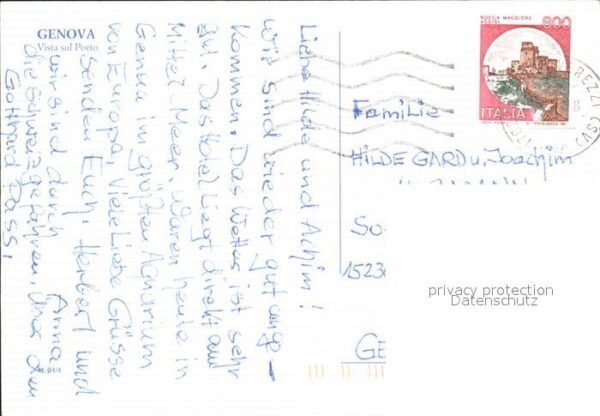 GENOVA
Vista sul Porto
Liebe Hilde und Achim!
Wir sind wieder gut ange-
kommen. Das Wetter ist sehr
gut. Das Hotel liegt direkt am
Mittel Meer. Waren heute in
Genua im größten Aquarium
von Europa. Viele Liebe Grüsse
senden Euch, Herbert und
Anna
wir sind durch
die Schweiz gefahren. über den
Gotthard Pass.
ROCCA MAGGIORE
ASSISI
800
ITALIA
Familie
HILDEGARD u. Joachim
So
1523
GE
privacy protection
Datenschutz